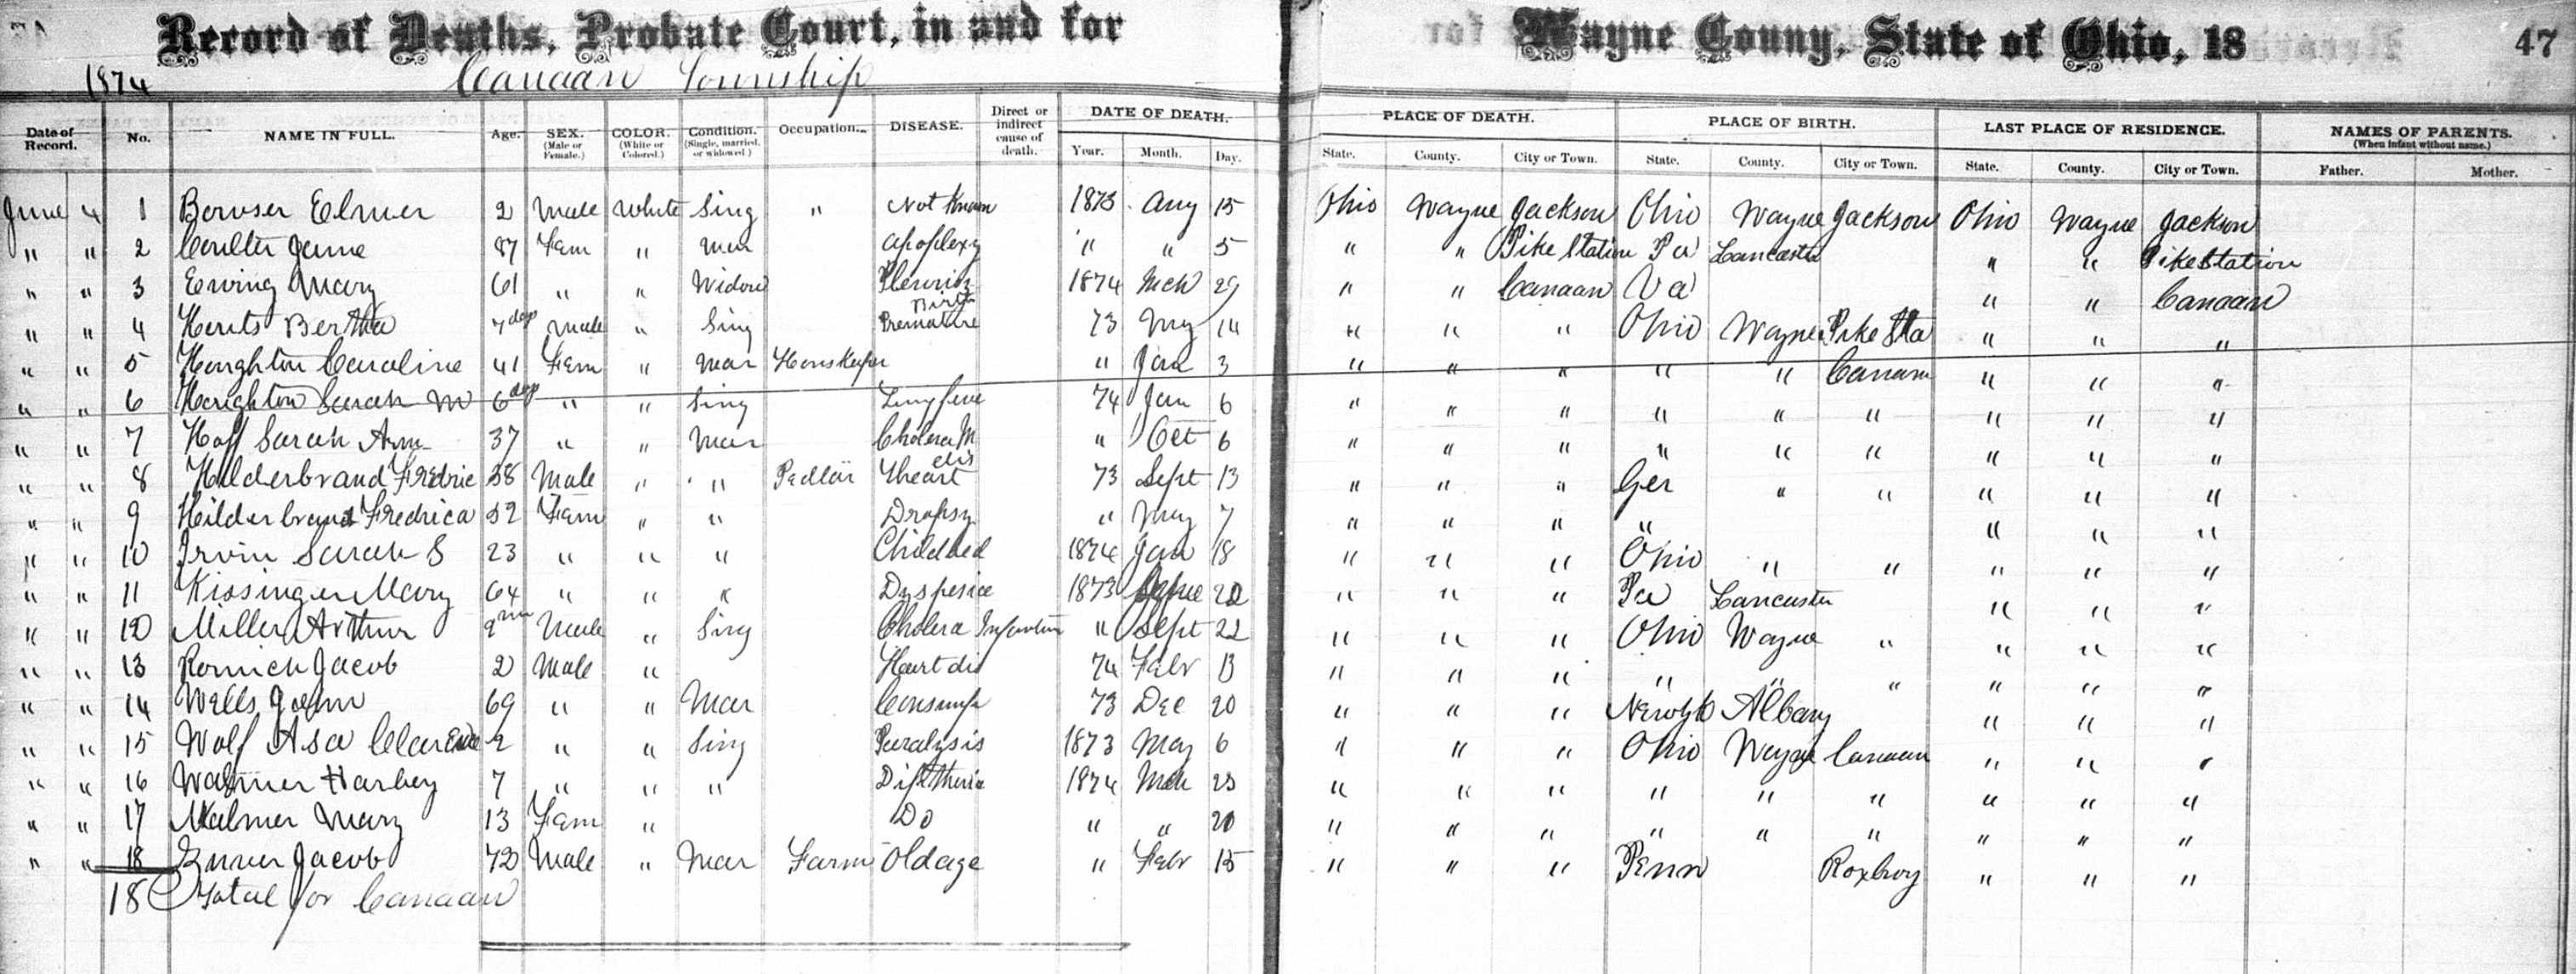 Record of Deaths, Probate Court, in and for Wayne Couny, State of Ohio, 18 47
1874 Canaan Township
Date of Record. No. NAME IN FULL. Age. SEX. (Male or Female.) COLOR. (White or Colored.) Condition. (Single, married, or widowed.) Occupation. DISEASE. Direct or indirect cause of death. DATE OF DEATH. PLACE OF DEATH. PLACE OF BIRTH. LAST PLACE OF RESIDENCE. NAMES OF PARENTS. (When infant without name.)
Year. Month. Day. State. County. City or Town. State. County. City or Town. State. County. City or Town. Father. Mother.
June 4 1 Bowser Elmer 2 Male White Sing " Not Known 1873 Aug 15 Ohio Wayne Jackson Ohio Wayne Jackson Ohio Wayne Jackson
" " 2 Coulter Jane 87 Fem " Mar Apoplexy " " 5 " " Pike Station Pa Lancaster " " Pike Station
" " 3 Ewing Mary 61 " " Widow Pleurisy 1874 Mch 29 " " Canaan Va " " Canaan
" " 4 Bertha 7 days Male " Sing Premature Birth 73 My 14 " " " Ohio Wayne Pike Sta " " "
" " 5 Houghton Caroline 41 Fem " Mar Houskeeper " Jan 3 " " " " " Canaan " " "
" " 6 Houghton Sarah M 6 days " " Sing Lung feve 74 Jan 6 " " " " " " " " "
" " 7 Hoff Sarah Ann 37 " " Mar Cholera M " Oct 6 " " " " " " " " "
" " 8 Hilderbrand Fredric 58 Male " " Pedlar Heart dis 73 Sept 13 " " " Ger " " " " "
" " 9 Hilderbrand Fredrica 52 Fem " " Dropsy " May 7 " " " " " " "
" " 10 Irvin Sarah S 23 " " " Childbed 1874 Jan 18 " " " Ohio " " " " "
" " 11 Kissinger Mary 64 " " " Dyspesia 1873 " " " Pa Lancaster " " "
" " 12 Miller Arthur 9 m Male " Sing Cholera Infantum " Sept 22 " " " Ohio Wayne " " " "
" " 13 Romich Jacob 2 Male " Hart dis 74 Febr 13 " " " " " " " " "
" " 14 Wells John 69 " " Mar Consump 73 Dec 20 " " " New Yk Albany " " "
" " 15 Wolf Asa Clarence 2 " " Sing Paralysis 1873 May 6 " " " Ohio Wayne Canaan " " "
" " 16 Harvey 7 " " " Diptheria 1874 Mch 23 " " " " " " " " "
" " 17 Mary 13 Fem " Do " " 20 " " " " " " " " "
" " 18 Jacob 72 Male " Mar Farm Old age " Febr 15 " " " Penn Roxbury " " "
18 Total for Canaan